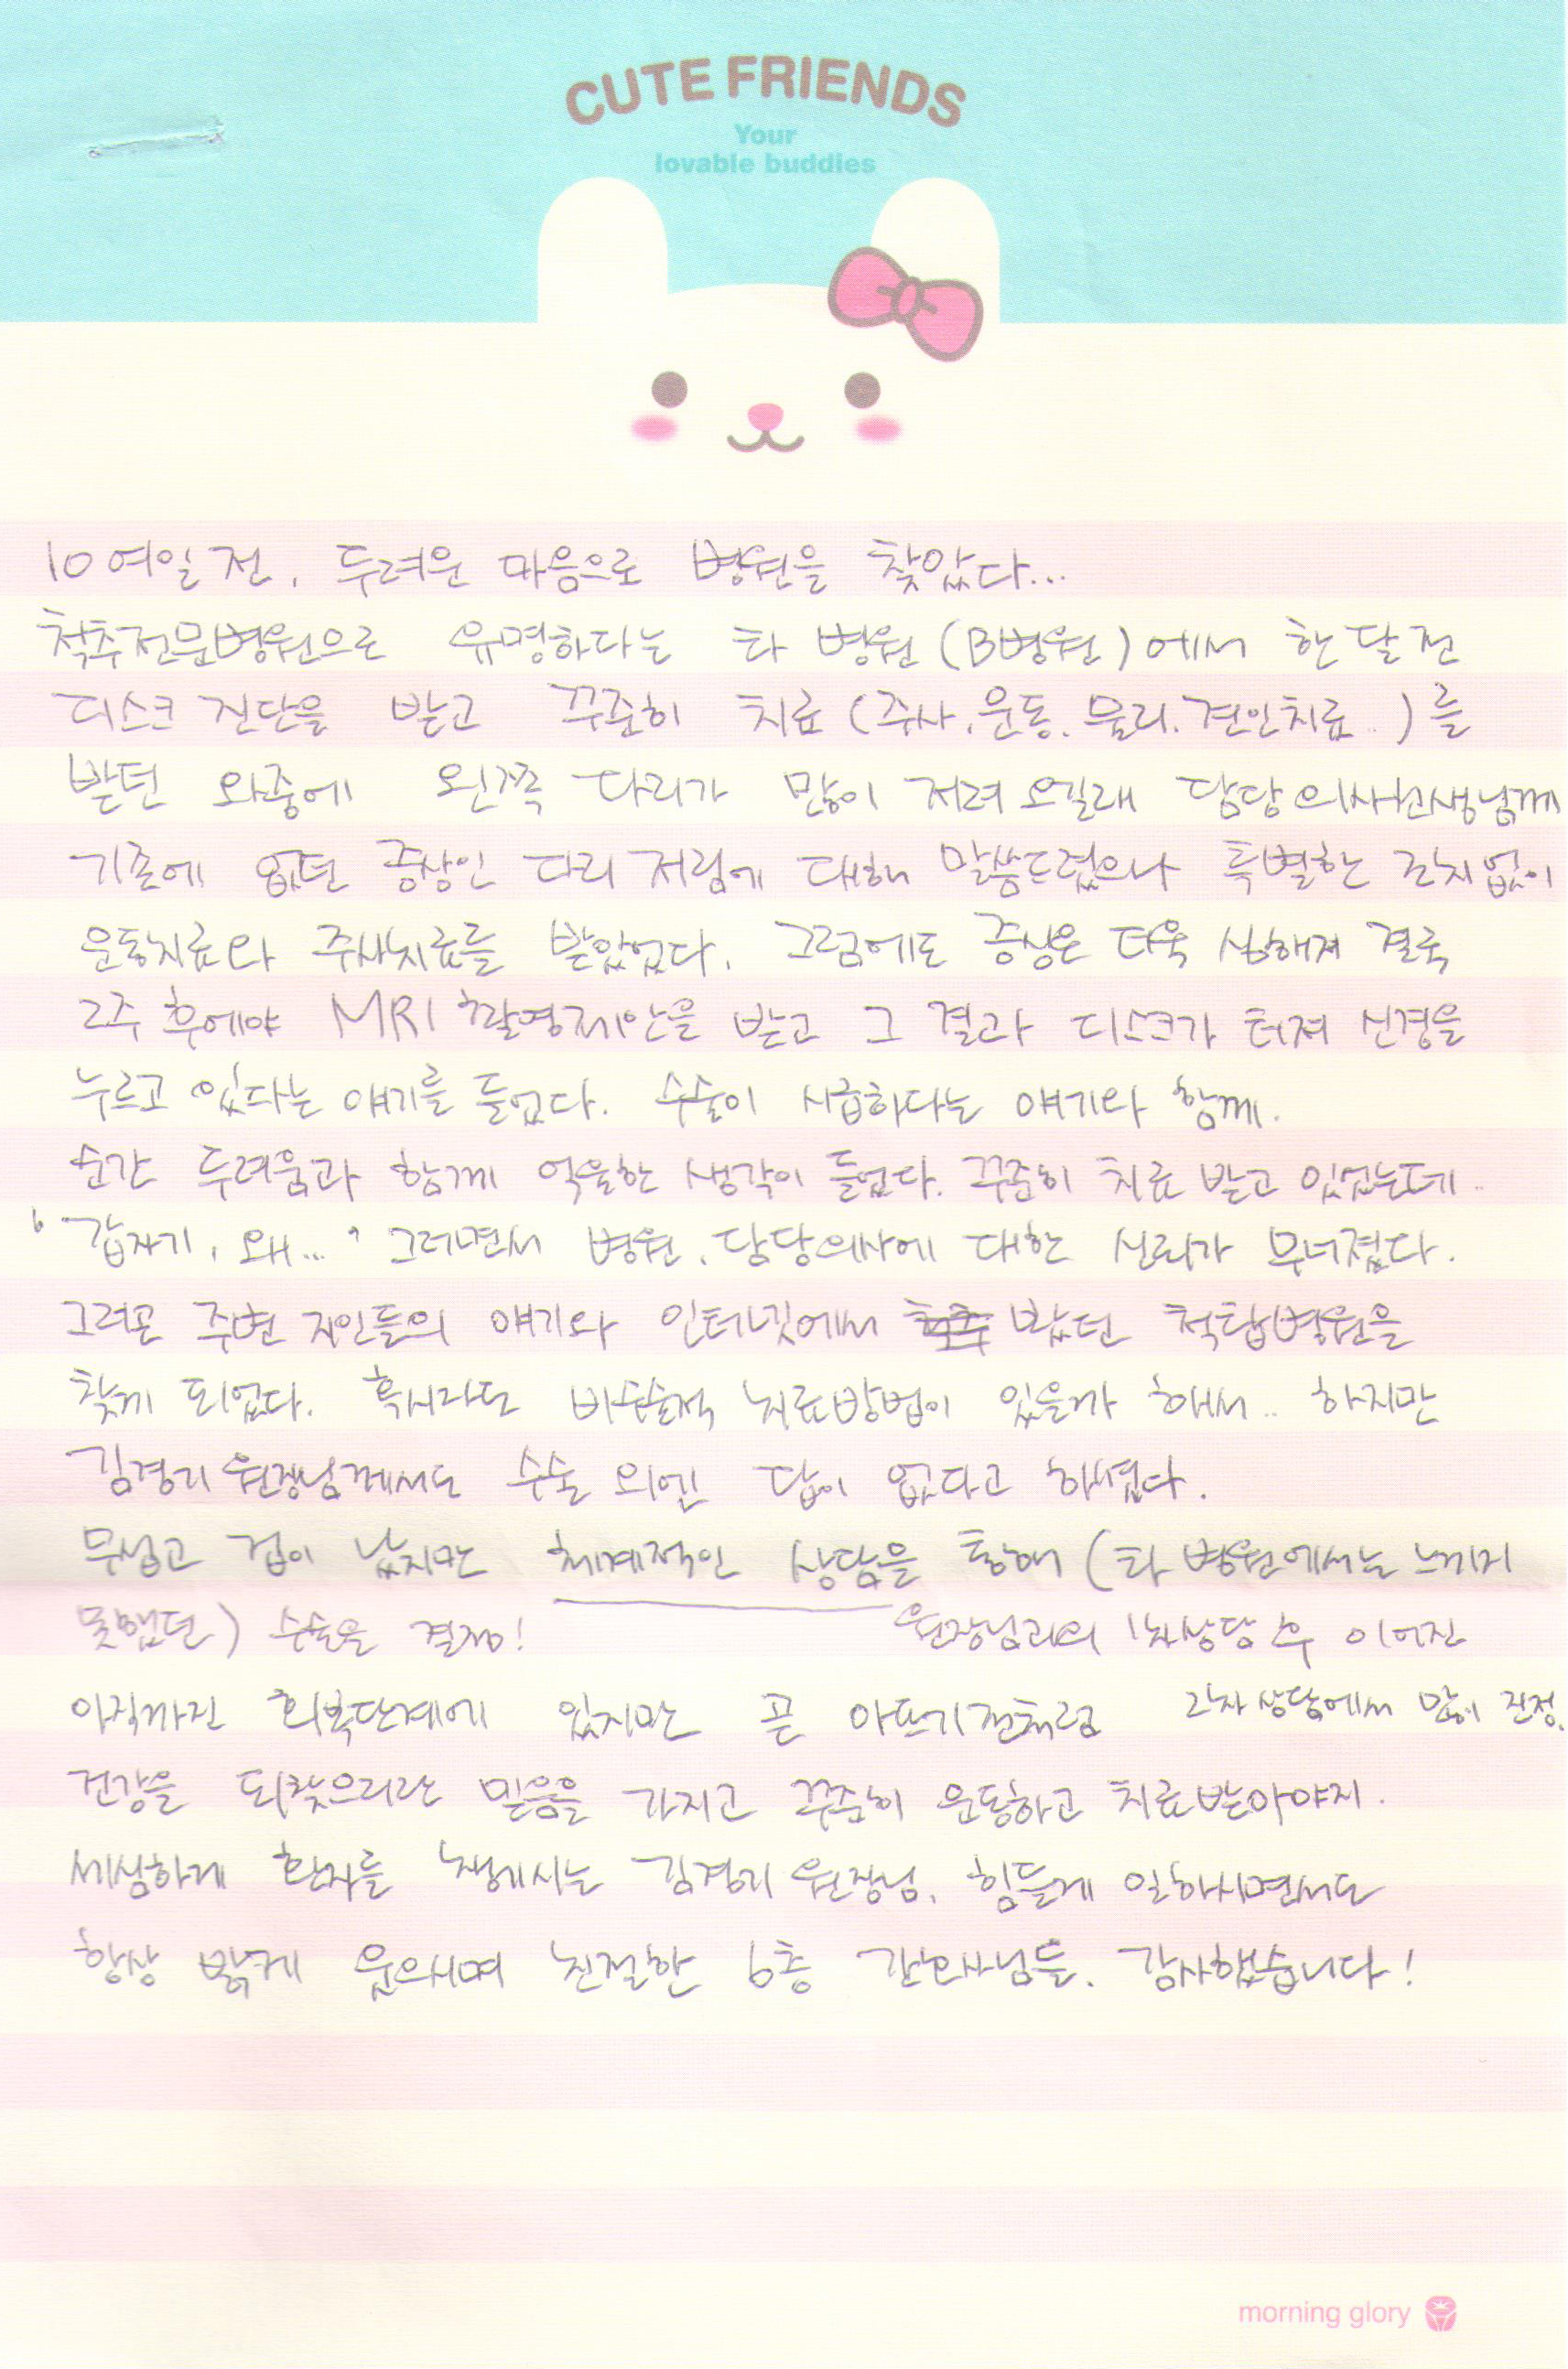 CUTE FRIENDS
Your
lovable buddies
10여일 전, 두려운 마음으로 병원을 찾았다...
척추전문병원으로 유명하다는 타 병원 (B병원)에서 한달 전
디스크 진단을 받고 꾸준히 치료 (주사.운동.물리.견인치료..)를
받던 와중에 왼쪽 다리가 많이 저려 오길래 담당의사선생님께
기존에 없던 증상인 다리 저림에 대해 말씀드렸으나 특별한 조치없이
운동치료와 주사치료를 받았었다. 그럼에도 증상은 더욱 심해져 결국
2주 후에야 MRI 촬영제안을 받고 그 결과 디스크가 터져 신경을
누르고 있다는 얘기를 들었다. 수술이 시급하다는 얘기와 함께.
순간 두려움과 함께 억울한 생각이 들었다. 꾸준히 치료 받고 있었는데..
'갑자기, 왜...' 그러면서 병원, 담당의사에 대한 신뢰가 무너졌다.
그러곤 주변 지인들의 얘기와 인터넷에서 봤던 척탑병원을
찾게 되었다. 혹시라도 비수술적 치료방법이 있을까 해서.. 하지만
김경기 원장님께서도 수술 외엔 답이 없다고 하셨다.
무섭고 겁이 났지만 체계적인 상담을 통해 (타 병원에서는 느끼지
못했던) 수술을 결정! 원장님과의 1차상담 후 이어진
아직까진 회복단계에 있지만 곧 아프기전처럼 2차 상담에서 많이 진정.
건강을 되찾으리란 믿음을 가지고 꾸준히 운동하고 치료받아야지.
세심하게 환자를 챙겨시는 김경기 원장님, 힘들게 일하시면서도
항상 밝게 웃으시며 친절한 6층 간호사님들. 감사했습니다!
morning glory